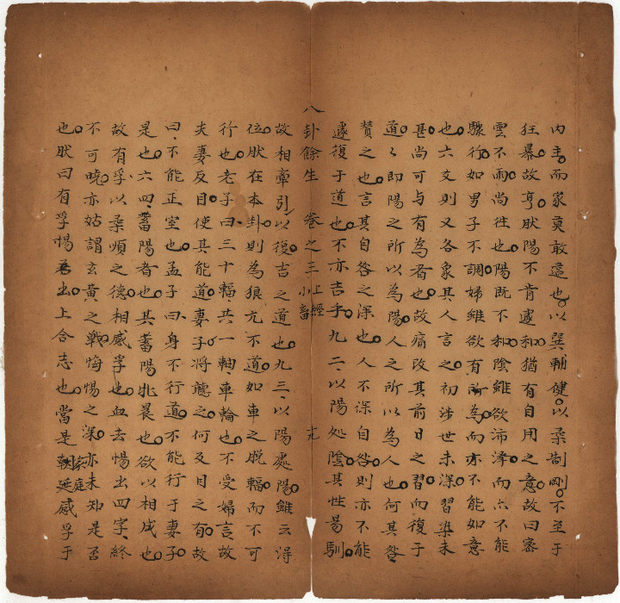 內主。而衆莫敢違也。以巽輔健。以柔制剛。不至于
狂暴故亨。肰陽不肯遽和猶有自用之意。故曰密
雲不雨尚往也。陽既不和。陰雖欲沛澤而亦不能
驟行。如男子不調。婦雖欲有所為而亦不能如意
也。六爻則又各象其人言之。初涉世未深。習染未
甚。尚可与有為者也。故痛改其前日之習。而復于
道。〻即陽之所以為陽。人之所以為人也。何其咎。
贊之也。言其自咎之深也。人不深自咎。則亦不能
遽復于道也。不亦吉乎。九二。以陽処陰。其性易馴。
八卦餘生 卷之三 上經 小畜 十九
故相牽引以復。吉之道也。九三。以陽處陽。雖云得
位。肰在本卦。則為狠亢不道。如車之脱輻。而不可
行也。老子曰。三十輻共一軸。車輪也。不受婦言故
夫妻反目。使其能道。妻子將聽之。何反目之有。故
曰、不能正室也。孟子曰、身不行道。不能行于妻子。
是也。六四、蓄陽者也。其蓄陽非畏也。欲以相成也。
故有孚。以柔順之德。相感孚也。血去惕出四字、終
不可曉。亦姑謂玄黃之戰。悔惕之深。亦未知是否
也。肰曰有孚惕出上合志也。當是家庭感孚于